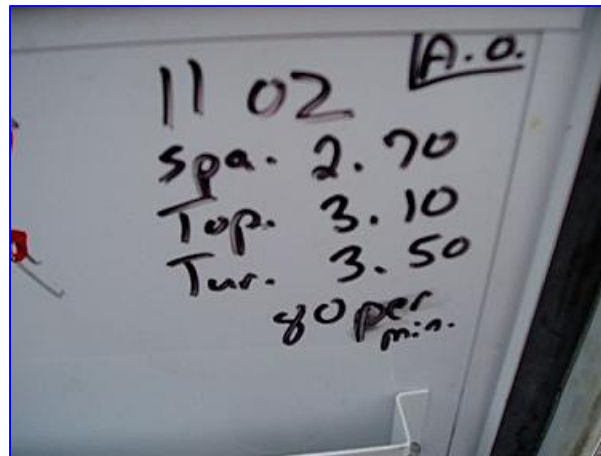 A.O.
11 02
Spa. 2.70
Top. 3.10
Tur. 3.50
80 per
min.